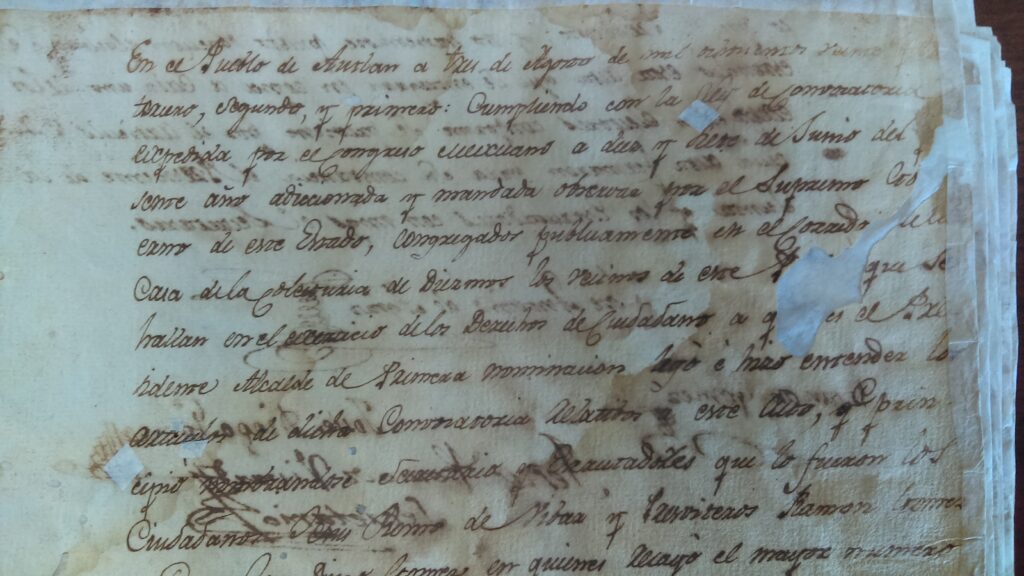 En el Pueblo de Autlan a tres de Agosto de mil
tercero, segundo, y primero: Cumpliendo con la Ley de Convocatoria
expedida por el Congreso Mexicano a diez y siete de Junio del
sente año adiccionada y mandada observar por el Supremo Gov
erno de este Estado, congregados publicamente en el Corredor de la
Casa de la Colecturia de Diezmos los vecinos de este que se
hallan en el exercicio de los Derechos de Ciudadano a es el Pre
idente Alcalde de Primera nominacion leyó é hizo entender lo
articulos de dicha Convocatoria relativos a este Acto, y prin-
cipió nombrandose Secretario y Escrutadores que lo fueron los
Ciudadanos Romo de y Ramon Gomez
en quienes recayó el mayor numero